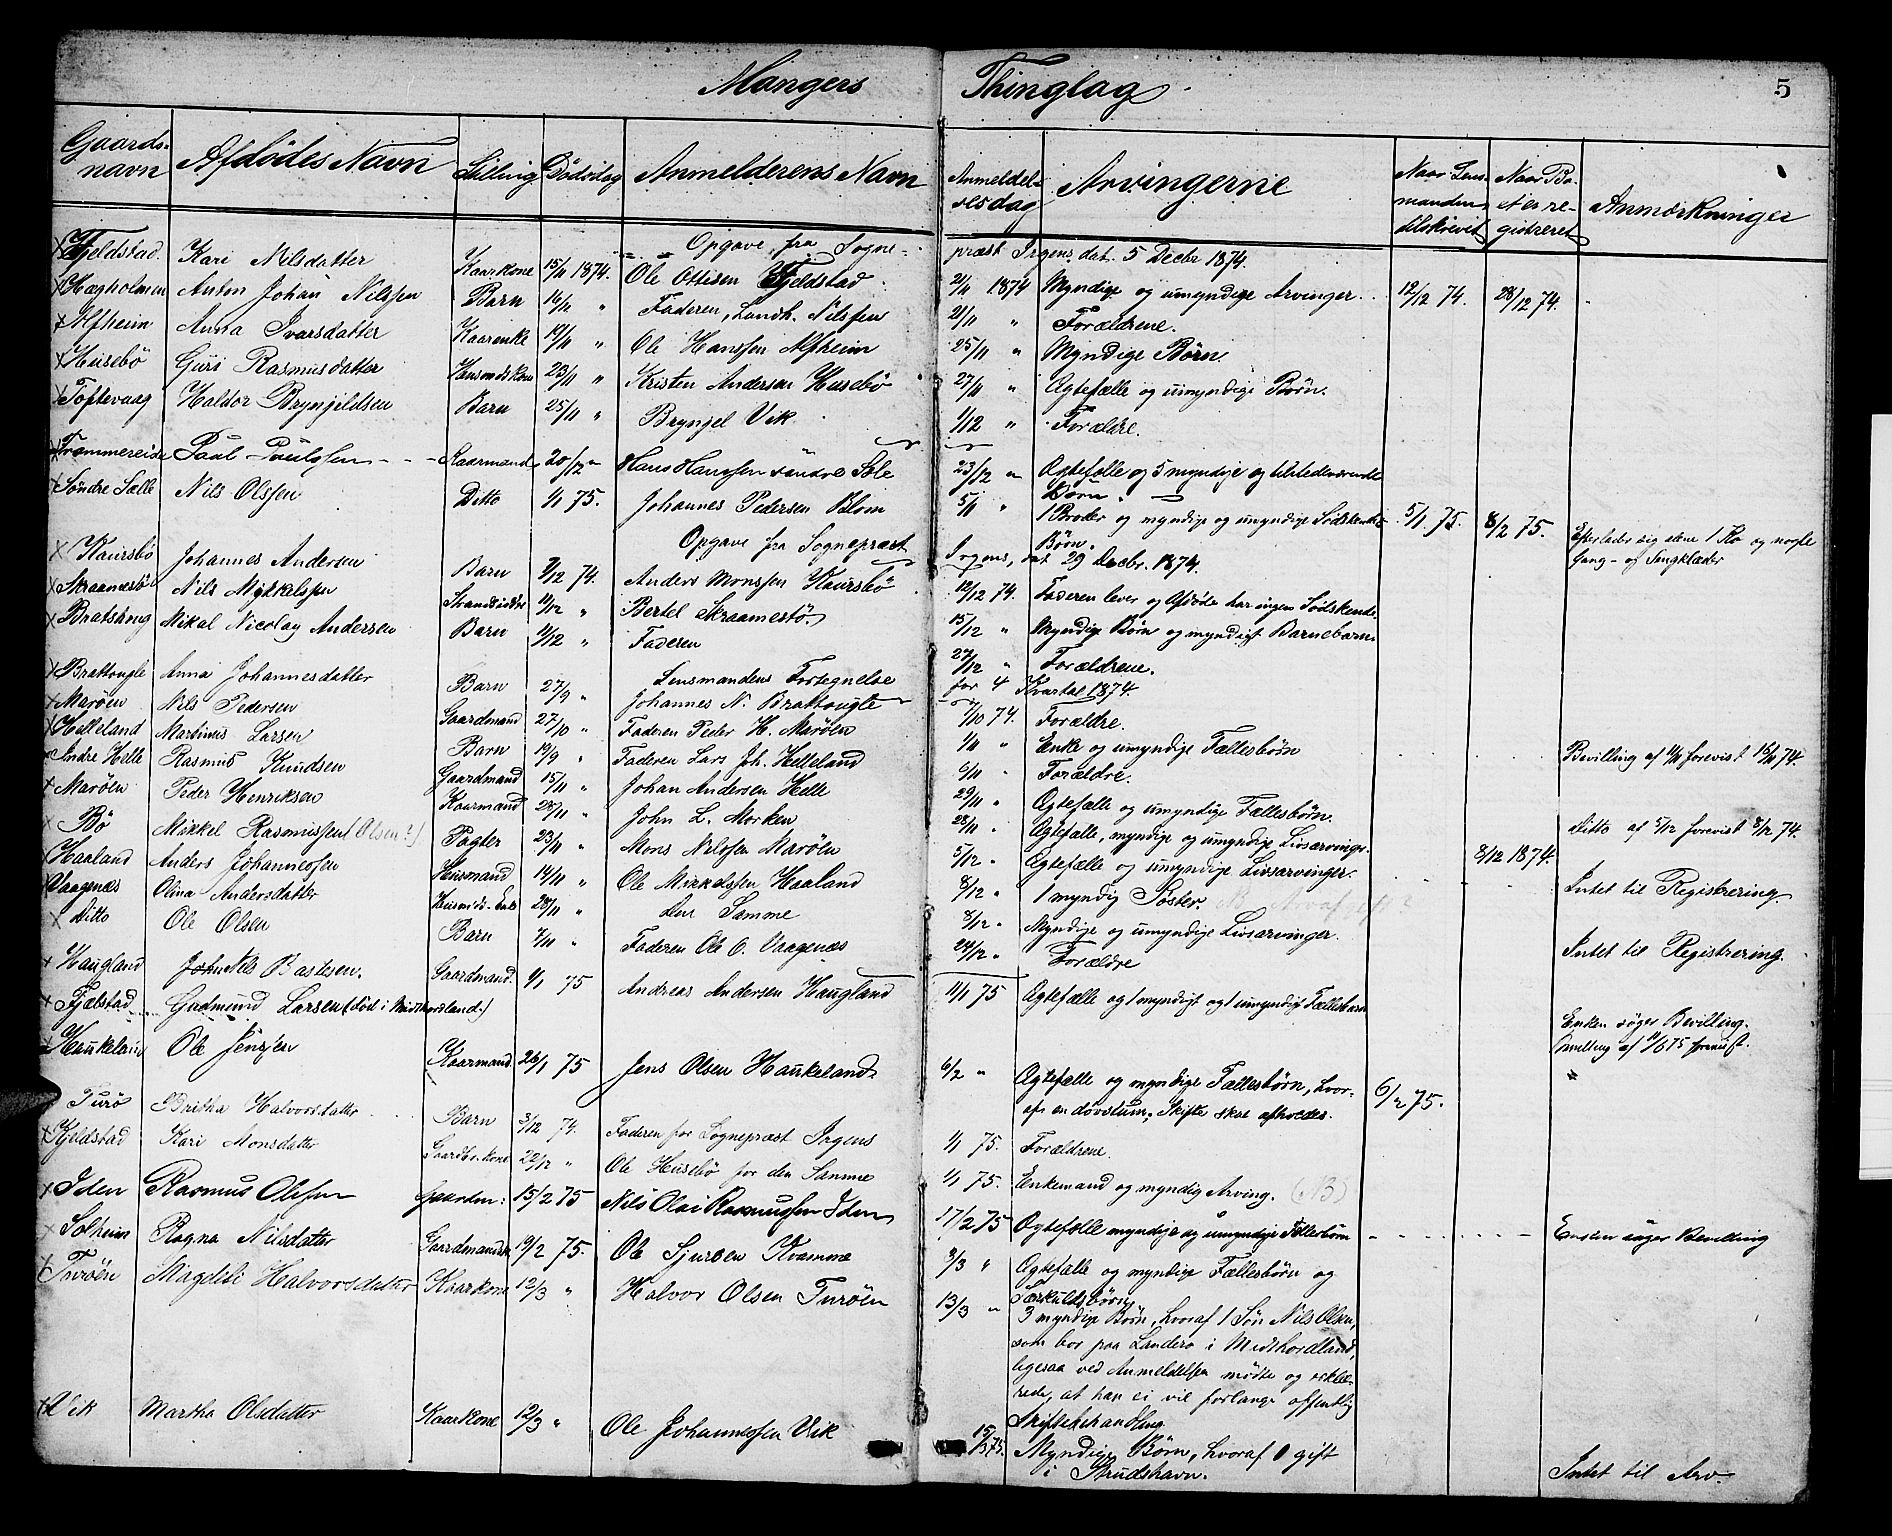 Mangers Thinglag
5
Gaards-navn Afdødes Navn Stilling Dødsdag Anmelderens Navn Anmeldel-sesdag Arvingerne Naar Lens-manden tilskrevet Naar Bo-et er re-gistreret Anmærkninger
Opgave fra Sogne- præst Irgens, dat. 5 Decbr 1874.
Fjeldstad Kari Nilsdatter Kaarkone 15/11 1874. Ole Ottisen Fjeldstad 21/11 1874 Myndige og umyndige Arvinger. 12/12 74. 28/12 74.
Hægholmen Anton Johan Nilssen Barn 16/11 " Faderen, Landh. Nilssen 21/11 " Forældrene.
Alfheim Anna Ivarsdatter Kaarenke 19/11 " Ole Hanssen Alfheim 25/11 " Myndige Børn.
Husebö Guri Rasmusdatter Husmdskone 23/11 " Kristen Andersen Husebö 27/11 " Ægtefælle og umyndige Børn.
Toftevaag Haldor Brynjeldsen Barn 25/11 " Brynjel Vik 1/12 " Forældre.
Trommereide Paul Paulssen Kaarmand 20/12 " Hans Hanssen söndre Sæle 23/12 " Ægtefælle og 5 myndige og tilstedeværende Børn.
Söndre Sælle Nils Olssen Ditto 1/1 75. Johannes Pedersen Blom 5/1 " 1 Broder og myndige og umyndige Södskende Børn. 5/1 75. 8/2 75. Efterlader sig alene 1 Ko og nogle Gang- og Sengklæder
Opgave fra Sognepræst Irgens, dat 29 Decbr. 1874.
Kaursbö Johannes Andersen Barn 9/12 74. Anders Monssen Kaursbö 12/12 74. Faderen lever og Afdøde har ingen Södskende.
Skraamestö Nils Mykkelssen Strandsidder 11/12 " Bertel Skraamestö 15/12 " Myndige Børn og myndigt Barnebarn
Mikal Nicolay Andersen Barn 4/12 " Faderen 27/12 " Forældrene.
Lensmandens Fortegnelse for 4 Kvartal 1874.
Brattongle Anna Johannesdatter Barn 27/9 " Johannes N. Brattongle 7/10 74. Forældre.
Marøen Nils Pedersen Gaardmand 27/10 " Faderen Peder H. Marøen 1/11 " Enke og umyndige Fællesbörn Bevilling af 11/11 forevist 15/11 74.
Helleland Martinus Larsen Barn 19/9 " Faderen Lars Joh. Helleland 6/11 " Forældre.
Indre Helle Rasmus Knudsen Gaardmand 15/11 " Johan Andersen Helle 29/11 " Ægtefælle og umyndige Fællesbörn.
Marøen Peder Henriksen Kaarmand 28/11 " John L. Morken 28/11 " Ægtefælle, myndige og umyndige Livsarvinger. Ditto af 5/12 forevist 8/12 74.
Bö Mikkel Rasmussen (Olsen?) Pagter 23/11 " Mons Nilssen Marøen 5/12 " Ægtefælle og umyndige Livsarvinger. 8/12 1874.
Haaland Anders Johannessen Husmand 14/11 " Ole Mikkelssen Haaland 8/12 " 1 myndig Søster. Intet til Registrering
Vaagenæs Olina Andersdatter Husmds. Enke 28/11 " den Samme 8/12 " Myndige og umyndige Livsarvinger.
Ditto Ole Olsen Barn 7/11 " Faderen Ole O. Vaagenæs 24/12 " Forældre Intet til Registrering.
Haugland Nils Bastesen. Gaardmand. 4/1 75 Andreas Andersen Haugland 11/1 75 Ægtefælle og 1 myndigt og 1 umyndigt Fællesbarn
Fjælstad Gudmund Larsen (död i Midthordland.) Enken søger Bevilling.
Haukeland Ole Jensen Kaarmand. 26/1 75 Jens Olsen Haukeland 6/2 " Ægtefælle og myndige Fællesbörn, hvor- 6/2 75.
af en døvstum, Skifte skal afholdes.
Turö Britha Halvorsdatter Barn 3/12 74. Faderen for Sognepræst Irgens 1/1 75. Forældrene.
Fjeldstad Kari Monsdatter Gaardbr.kone 22/12 " Ole Husebö for den Samme 1/1 75. Enkemand og myndig Arving. (NB)
Iden Rasmus Olssen 15/2 75 Nils Olai Rasmussen Iden 17/2 75 Ægtefælle myndige og umyndige Fællesbörn Enken søger Bevilling
Solheim Ragna Nilsdatter Gaardmandsk. 19/2 75. Ole Sjursen Kvamme 3/3 " Ægtefælle og myndige Fællesbörn og Særkuldsbörn
Turöen Magdeli Halvorsdatter Kaarkone 12/3 " Halvor Olsen Turöen 13/3 " 3 myndige Börn, hvoraf 1 Søn Nils Olsen,
som bor paa Landero i Midthordland,
ligesaa ved Anmeldelsen mødte og erklæ-
rede, at han ei vil forlange offentlig
Skiftebehandling
Vik Martha Olsdatter Kaarkone 12/3 " Ole Johannessen Vik 15/3 75. Myndige Börn, hvoraf 1 gift
i Strudshavn. Intet til Arv.